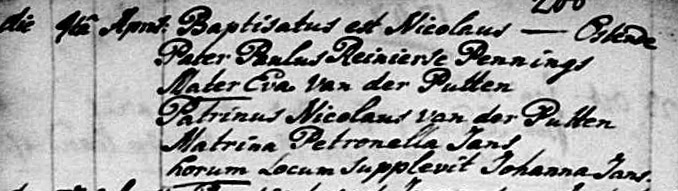 die 4tâ Apris: Baptisatus est Nicolaus — Ostende
Pater Paulus Reinierse Pennings
Mater Eva van der Putten
Patrinus Nicolaus van der Putten
Matrina Petronella Jans
horum Locum Supplevit Johanna Jans.